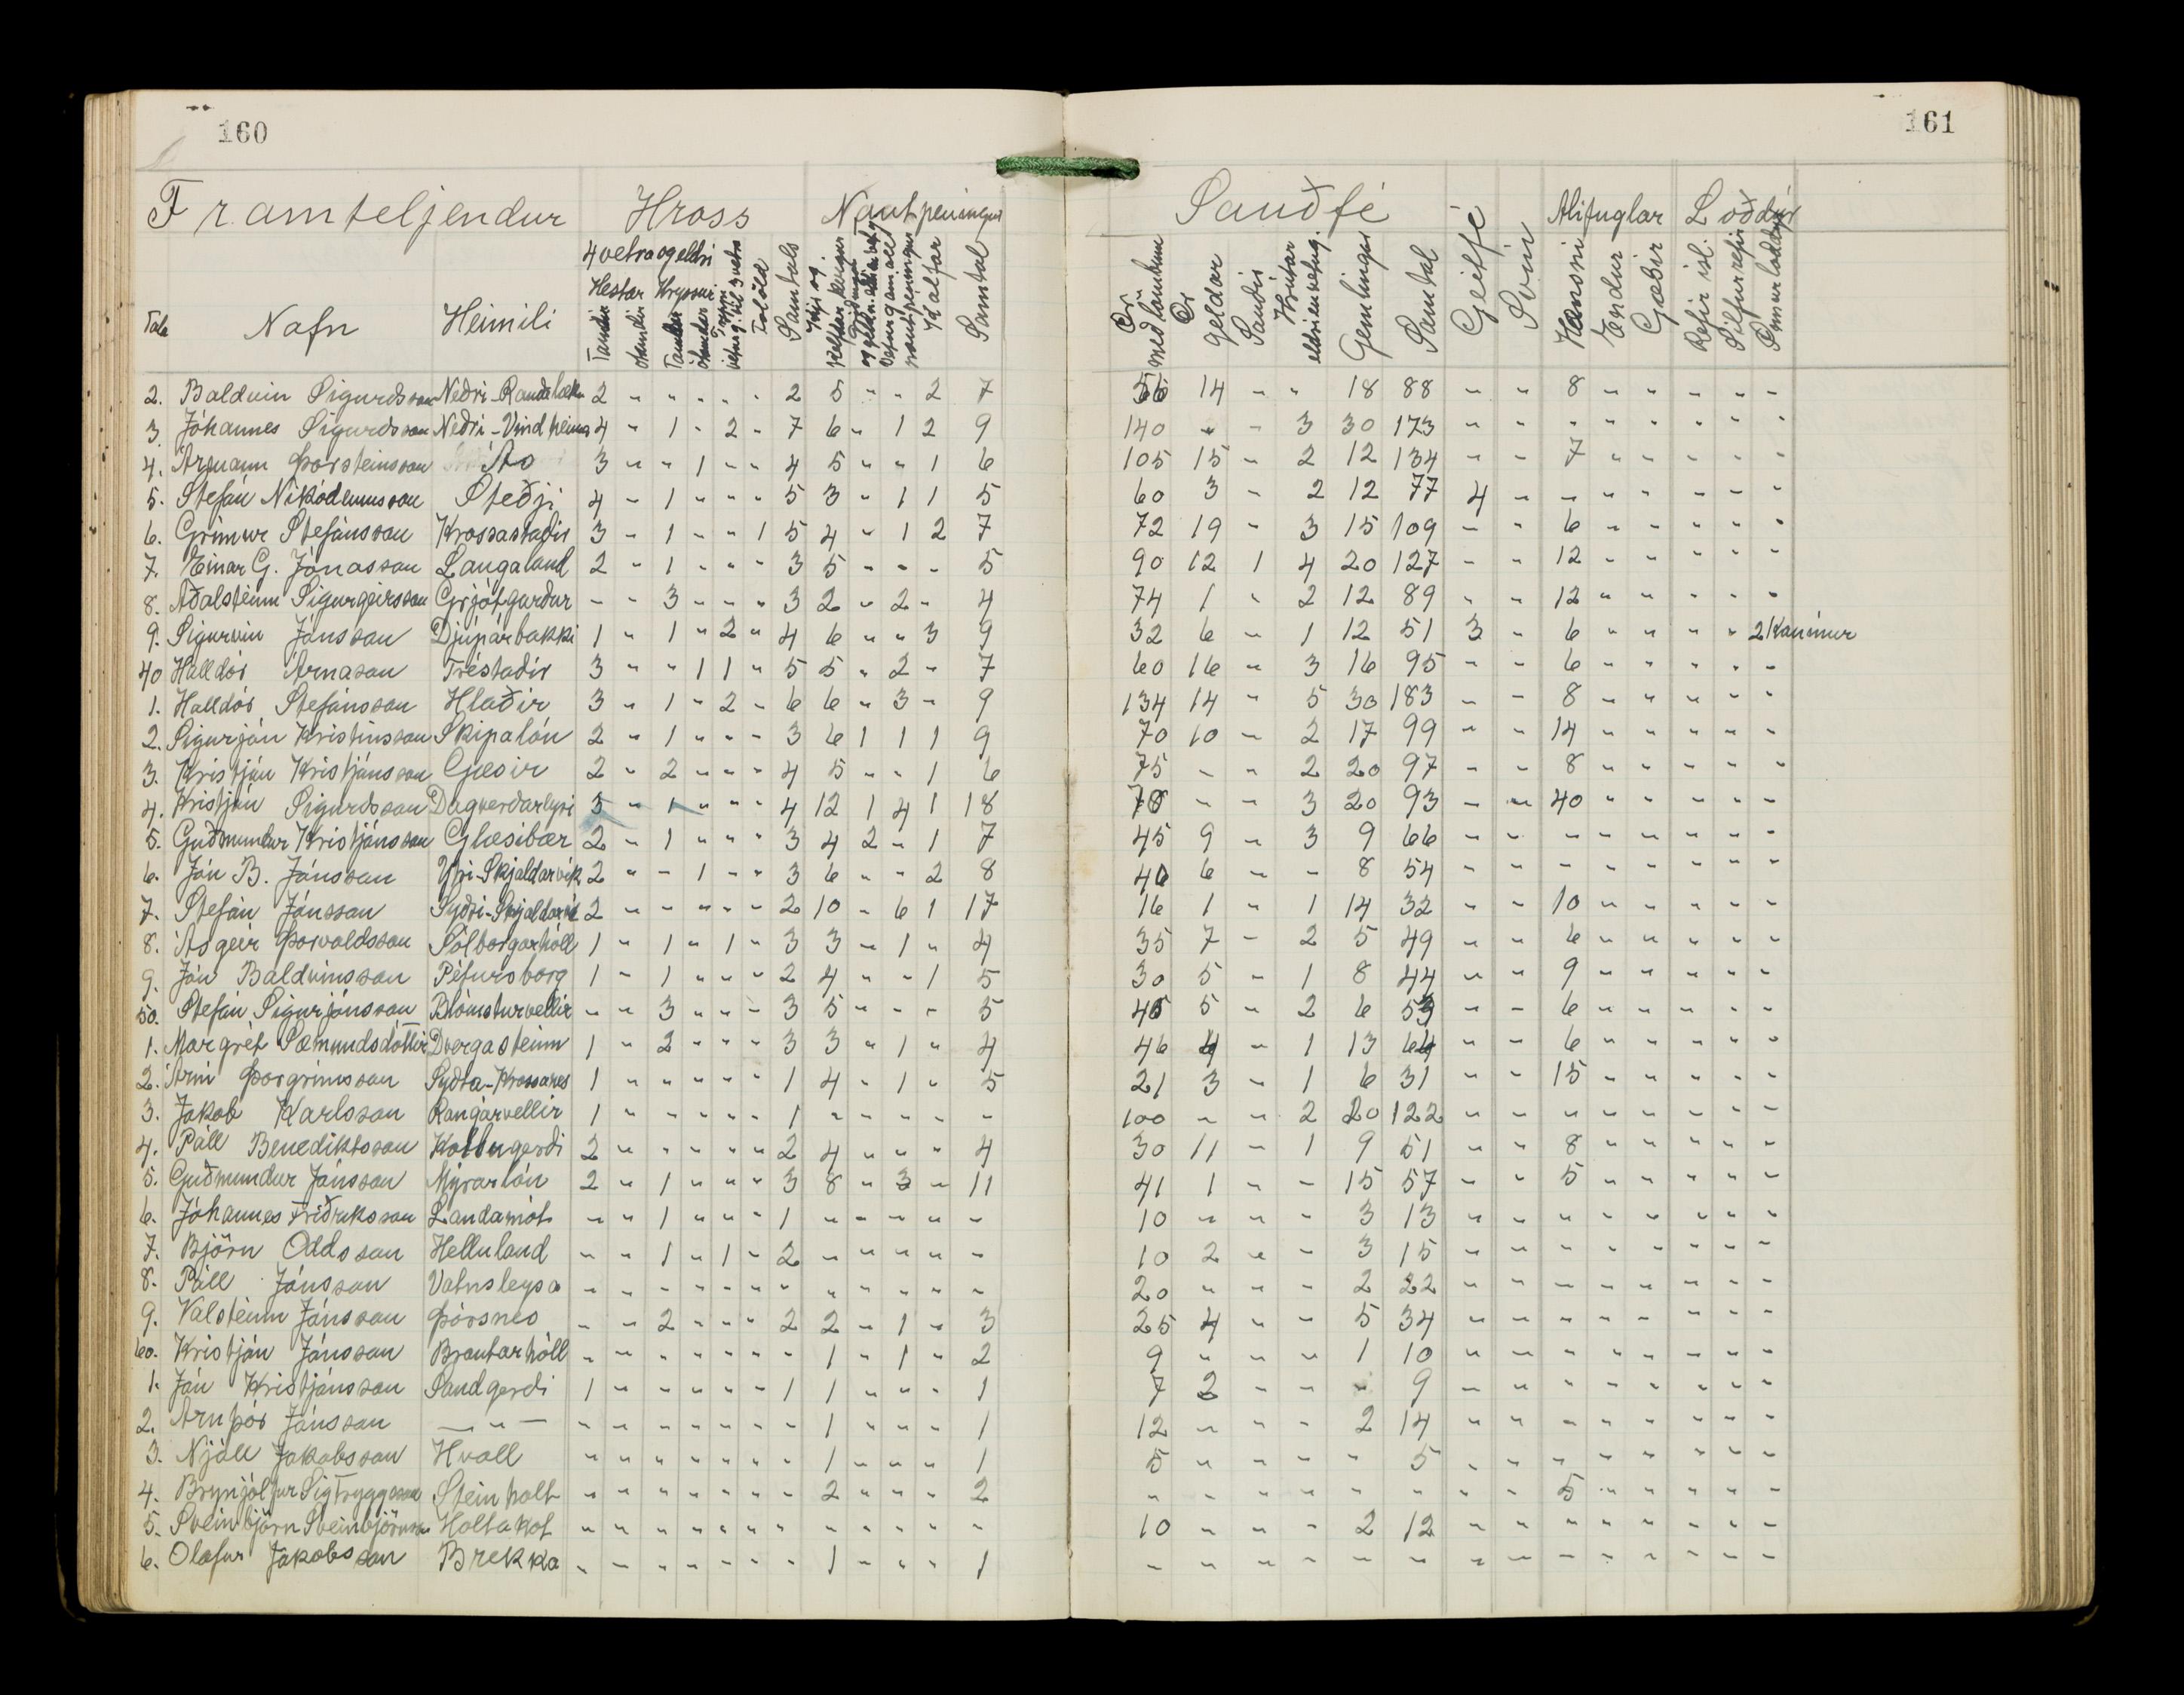 160
161
Framteljendur Hross Nautpeningur Sauðfé Geitfé Svín Alifuglar Loðdýr
4 vetra og eldri
Hestar Hryssur
Tala Nafn Heimili Tamdir ótamdir Tamdar ótamdar Tryppi veturg. til 3 vetra Folöld Samtals Kýr og kelfdar kvígur Geldneyti Veturgamall nautpeningur Kálfar Samtal Ær með lömbum Ær geldar Sauðir Hrútar eldri en veturg. Gemlingar Samtal Hænsni Endur Gæsir Refir ísl. Silfurrefir Önnur loðdýr
2. Baldvin Sigurdsson Neðri-Rauðalæk 2 " " " " " 2 5 " " 2 7 56 14 " " 18 88 " " 8 " " " " "
3. Jóhannes Sigurdsson Neðri-Vindheima 4 " 1 " 2 " 7 6 " 1 2 9 140 " " 3 30 173 " " " " " " " "
4. Ármann Þorsteinsson Ás 3 " " 1 " " 4 5 " " 1 6 105 15 " 2 12 134 " " 7 " " " " "
5. Stefán Nikódemusson Steðji 4 " 1 " " " 5 3 " 1 1 5 60 3 " 2 12 77 4 " " " " " " "
6. Grímur Stefánsson Krossastaðir 3 " 1 " " 1 5 4 " 1 2 7 72 19 " 3 15 109 " " 6 " " " " "
7. Einar G. Jónasson Laugaland 2 " 1 " " " 3 5 " " " 5 90 12 1 4 20 127 " " 12 " " " " "
8. Aðalsteinn Sigurgeirsson Grjótgarður " " 3 " " " 3 2 " 2 " 4 74 1 " 2 12 89 " " 12 " " " " "
9. Sigurvin Jónsson Djúpárbakki 1 " 1 " 2 " 4 6 " " 3 9 32 6 " 1 12 51 3 " 6 " " " " 2 Kanínur
40 Halldór Árnason Tréstaðir 3 " " 1 1 " 5 5 " 2 " 7 60 16 " 3 16 95 " " 6 " " " " "
1. Halldór Stefánsson Hlaðir 3 " 1 " 2 " 6 6 " 3 " 9 134 14 " 5 30 183 " " 8 " " " " "
2. Sigurjón Kristinsson Skipalón 2 " 1 " " " 3 6 1 1 1 9 70 10 " 2 17 99 " " 14 " " " " "
3. Kristján Kristjánsson Gæsir 2 " 2 " " " 4 5 " " 1 6 75 " " 2 20 97 " " 8 " " " " "
4. Kristján Sigurdsson Dagverðareyri 3 " 1 " " " 4 12 1 4 1 18 70 " " 3 20 93 " " 40 " " " " "
5. Guðmundur Kristjánsson Glæsibær 2 " 1 " " " 3 4 2 " 1 7 45 9 " 3 9 66 " " " " " " " "
6. Jón B. Jónsson Ytri-Skjaldarvík 2 " " 1 " " 3 6 " " 2 8 40 6 " " 8 54 " " " " " " " "
7. Stefán Jónsson Syðri-Skjaldarvík 2 " " " " " 2 10 " 6 1 17 16 1 " 1 14 32 " " 10 " " " " "
8. Ásgeir Þorvaldsson Sólborgarhóll 1 " 1 " 1 " 3 3 " 1 " 4 35 7 " 2 5 49 " " 6 " " " " "
9. Jón Baldvinsson Pétursborg 1 " 1 " " " 2 4 " " 1 5 30 5 " 1 8 44 " " 9 " " " " "
50. Stefán Sigurjónsson Blómsturvellir " " 3 " " " 3 5 " " " 5 40 5 " 2 6 53 " " 6 " " " " "
1. Margrét Sæmundsdóttir Dvergasteinn 1 " 2 " " " 3 3 " 1 " 4 46 4 " 1 13 64 " " 6 " " " " "
2. Árni Þorgrímsson Syðta-Krossanes 1 " " " " " 1 4 " 1 " 5 21 3 " 1 6 31 " " 15 " " " " "
3. Jakob Karlsson Rangárvellir 1 " " " " " 1 " " " " " 100 " " 2 20 122 " " " " " " " "
4. Páll Benediktsson Kollugerði 2 " " " " " 2 4 " " " 4 30 11 " 1 9 51 " " 8 " " " " "
5. Guðmundur Jónsson Mýrarlón 2 " 1 " " " 3 8 " 3 " 11 41 1 " " 15 57 " " 5 " " " " "
6. Jóhannes Friðriksson Landamót " " 1 " " " 1 " " " " " 10 " " " 3 13 " " " " " " " "
7. Björn Oddsson Helluland " " 1 " 1 " 2 " " " " " 10 2 " " 3 15 " " " " " " " "
8. Páll Jónsson Vatnsleysa " " " " " " " " " " " " 20 " " " 2 22 " " " " " " " "
9. Valsteinn Jónsson Þórsnes " " 2 " " " 2 2 " 1 " 3 25 4 " " 5 34 " " " " " " " "
60. Kristján Jónsson Brautarhóll " " " " " " " 1 " 1 " 2 9 " " " 1 10 " " " " " " " "
1. Jón Kristjánsson Sandgerði 1 " " " " " 1 1 " " " 1 7 2 " " " 9 " " " " " " " "
2. Arnþór Jónsson — " — " " " " " " " 1 " " " 1 12 " " " 2 14 " " " " " " " "
3. Njáll Jakobsson Hvoll " " " " " " " 1 " " " 1 5 " " " " 5 " " " " " " " "
4. Brynjólfur Sigtryggsson Steinholt " " " " " " " 2 " " " 2 " " " " " " " " 5 " " " " "
5. Sveinbjörn Sveinbjörnsson Holtakot " " " " " " " " " " " " 10 " " " 2 12 " " " " " " " "
6. Olafur Jakobsson Brekka " " " " " " " 1 " " " 1 " " " " " " " " " " " " " "